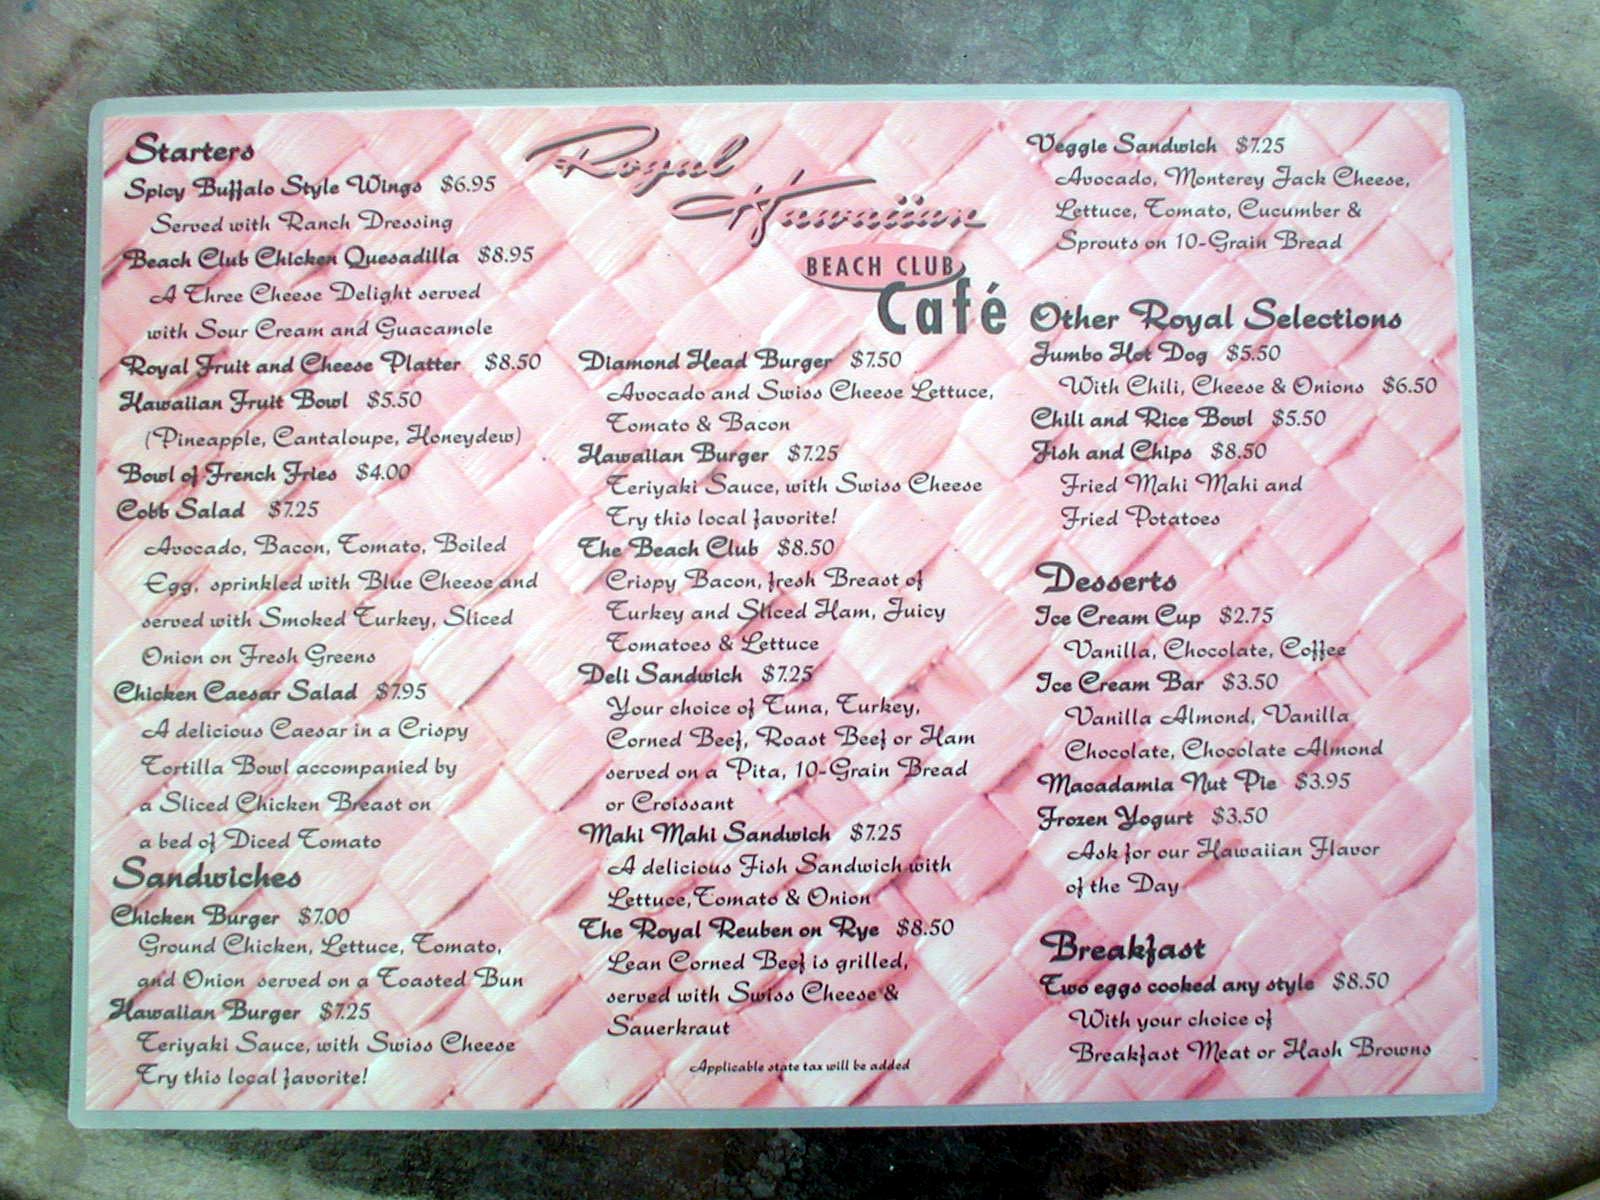 Starters
Spicy Buffalo Style Wings $6.95
Served with Ranch Dressing
Beach Club Chicken Quesadilla $8.95
A Three Cheese Delight served
with Sour Cream and Guacamole
Royal Fruit and Cheese Platter $8.50
Hawaiian Fruit Bowl $5.50
(Pineapple, Cantaloupe, Honeydew)
Bowl of French Fries $4.00
Cobb Salad $7.25
Avocado, Bacon, Tomato, Boiled
Egg, sprinkled with Blue Cheese and
served with Smoked Turkey, Sliced
Onion on Fresh Greens
Chicken Caesar Salad $7.95
A delicious Caesar in a Crispy
Tortilla Bowl accompanied by
a Sliced Chicken Breast on
a bed of Diced Tomato
Sandwiches
Chicken Burger $7.00
Ground Chicken, Lettuce, Tomato,
and Onion served on a Toasted Bun
Hawaiian Burger $7.25
Teriyaki Sauce, with Swiss Cheese
Try this local favorite!
Royal
Hawaiian
BEACH CLUB
Café
Diamond Head Burger $7.50
Avocado and Swiss Cheese Lettuce,
Tomato & Bacon
Hawaiian Burger $7.25
Teriyaki Sauce, with Swiss Cheese
Try this local favorite!
The Beach Club $8.50
Crispy Bacon, fresh Breast of
Turkey and Sliced Ham, Juicy
Tomatoes & Lettuce
Deli Sandwich $7.25
Your choice of Tuna, Turkey,
Corned Beef, Roast Beef or Ham
served on a Pita, 10-Grain Bread
or Croissant
Mahi Mahi Sandwich $7.25
A delicious Fish Sandwich with
Lettuce, Tomato & Onion
The Royal Reuben on Rye $8.50
Lean Corned Beef is grilled,
served with Swiss Cheese &
Sauerkraut
Applicable state tax will be added
Veggie Sandwich $7.25
Avocado, Monterey Jack Cheese,
Lettuce, Tomato, Cucumber &
Sprouts on 10-Grain Bread
Other Royal Selections
Jumbo Hot Dog $5.50
With Chili, Cheese & Onions $6.50
Chili and Rice Bowl $5.50
Fish and Chips $8.50
Fried Mahi Mahi and
Fried Potatoes
Desserts
Ice Cream Cup $2.75
Vanilla, Chocolate, Coffee
Ice Cream Bar $3.50
Vanilla Almond, Vanilla
Chocolate, Chocolate Almond
Macadamia Nut Pie $3.95
Frozen Yogurt $3.50
Ask for our Hawaiian Flavor
of the Day
Breakfast
Two eggs cooked any style $8.50
With your choice of
Breakfast Meat or Hash Browns